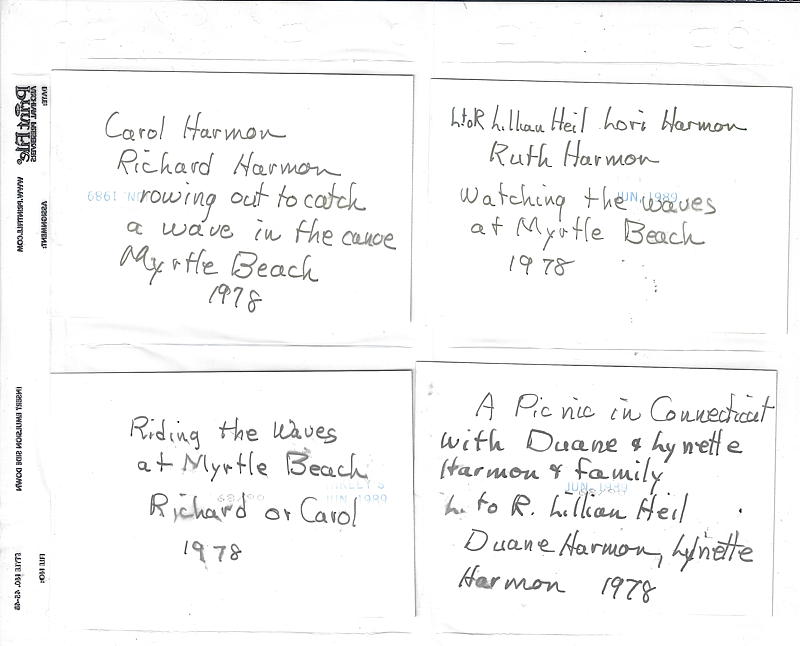 Carol Harmon
Richard Harmon
rowing out to catch
a wave in the canoe
Myrtle Beach
1978
JUN 1989
L to R Lillian Heil Lori Harmon
Ruth Harmon
Watching the waves
at Myrtle Beach
1978
JUN 1989
Riding the Waves
at Myrtle Beach
Richard or Carol
1978
JUN 1989
A Picnic in Connecticut
with Duane & Lynette
Harmon & family
L. to R. Lillian Heil
Duane Harmon, Lynette
Harmon 1978
DATE:
ASSIGNMENT:
FILE NO:
Print File
ARCHIVAL PRESERVERS
WWW.PRINTFILE.COM
INSERT EMULSION SIDE DOWN